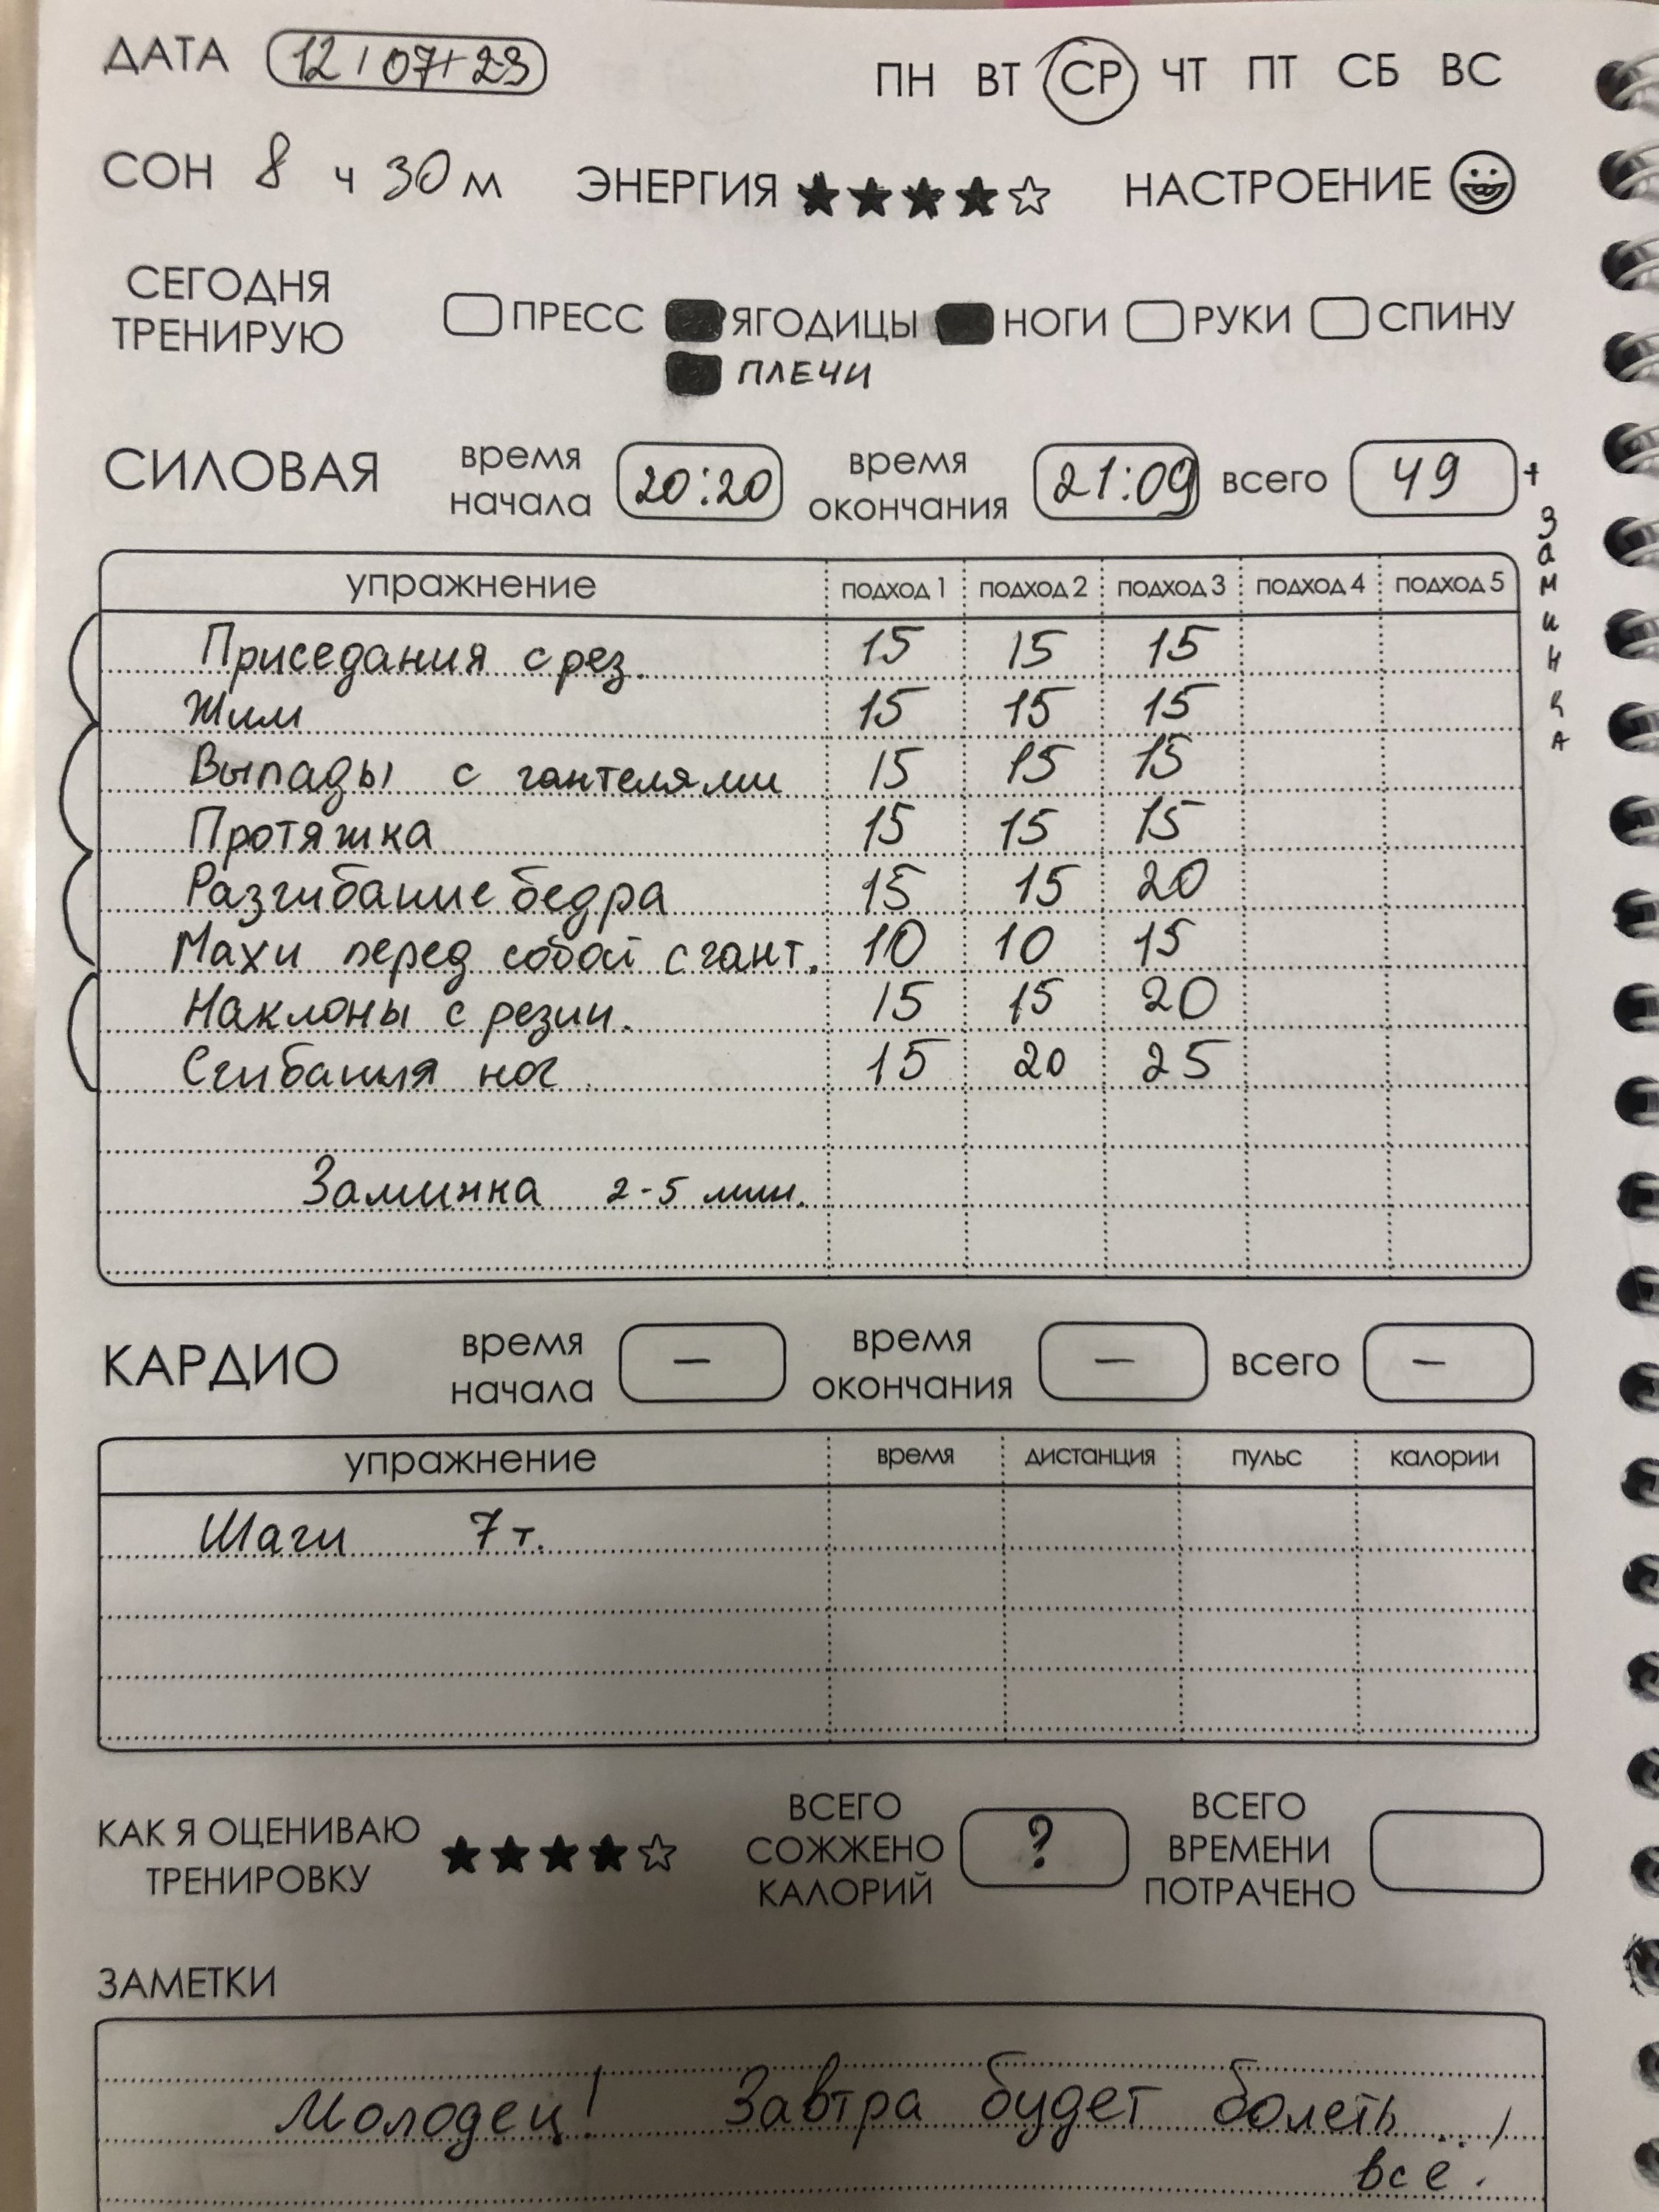 ДАТА 12 / 07 / 23 ПН ВТ СР ЧТ ПТ СБ ВС
СОН 8 ч 30 м ЭНЕРГИЯ ★★★★☆ НАСТРОЕНИЕ
СЕГОДНЯ ТРЕНИРУЮ ПРЕСС ЯГОДИЦЫ НОГИ РУКИ СПИНУ
ПЛЕЧИ
СИЛОВАЯ время начала 20:20 время окончания 21:09 всего 49 + заминка
упражнение ПОДХОД 1 ПОДХОД 2 ПОДХОД 3 ПОДХОД 4 ПОДХОД 5
Приседания с рез. 15 15 15
Жим 15 15 15
Выпады с гантелями 15 15 15
Протяжка 15 15 15
Разгибание бедра 15 15 20
Махи перед собой с гант. 10 10 15
Наклоны с резин. 15 15 20
Сгибания ног 15 20 25
Заминка 2-5 мин.
КАРДИО время начала — время окончания — всего —
упражнение время дистанция пульс калории
Шаги 7 т.
КАК Я ОЦЕНИВАЮ ТРЕНИРОВКУ ★★★★☆ ВСЕГО СОЖЖЕНО КАЛОРИЙ ? ВСЕГО ВРЕМЕНИ ПОТРАЧЕНО
ЗАМЕТКИ
Молодец! Завтра будет болеть ..
все.